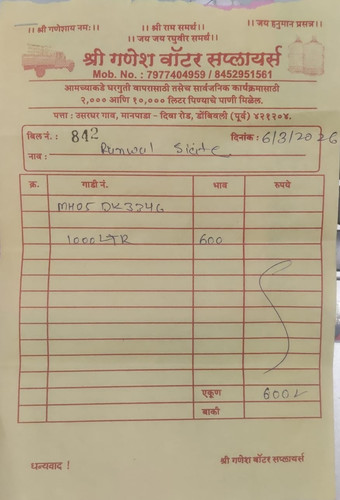 ।। श्री गणेशाय नमः ।। ।। श्री राम समर्थ ।। ।। जय हनुमान प्रसन्न ।।
।। जय जय रघुवीर समर्थ ।।
श्री गणेश वॉटर सप्लायर्स
Mob. No. : 7977404959 / 8452951561
आमच्याकडे घरगुती वापरासाठी तसेच सार्वजनिक कार्यक्रमासाठी
२,००० आणि १०,००० लिटर पिण्याचे पाणी मिळेल.
पत्ता : उसरघर गाव, मानपाडा - दिवा रोड, डोंबिवली (पूर्व) ४२१२०४.
बिल नं. : 842 दिनांक : 6/3/2026
नाव : Runwal
क्र. गाडी नं. भाव रुपये
MH05 DK3346
1000 LTR 600
एकूण 600/-
बाकी
धन्यवाद ! श्री गणेश वॉटर सप्लायर्स